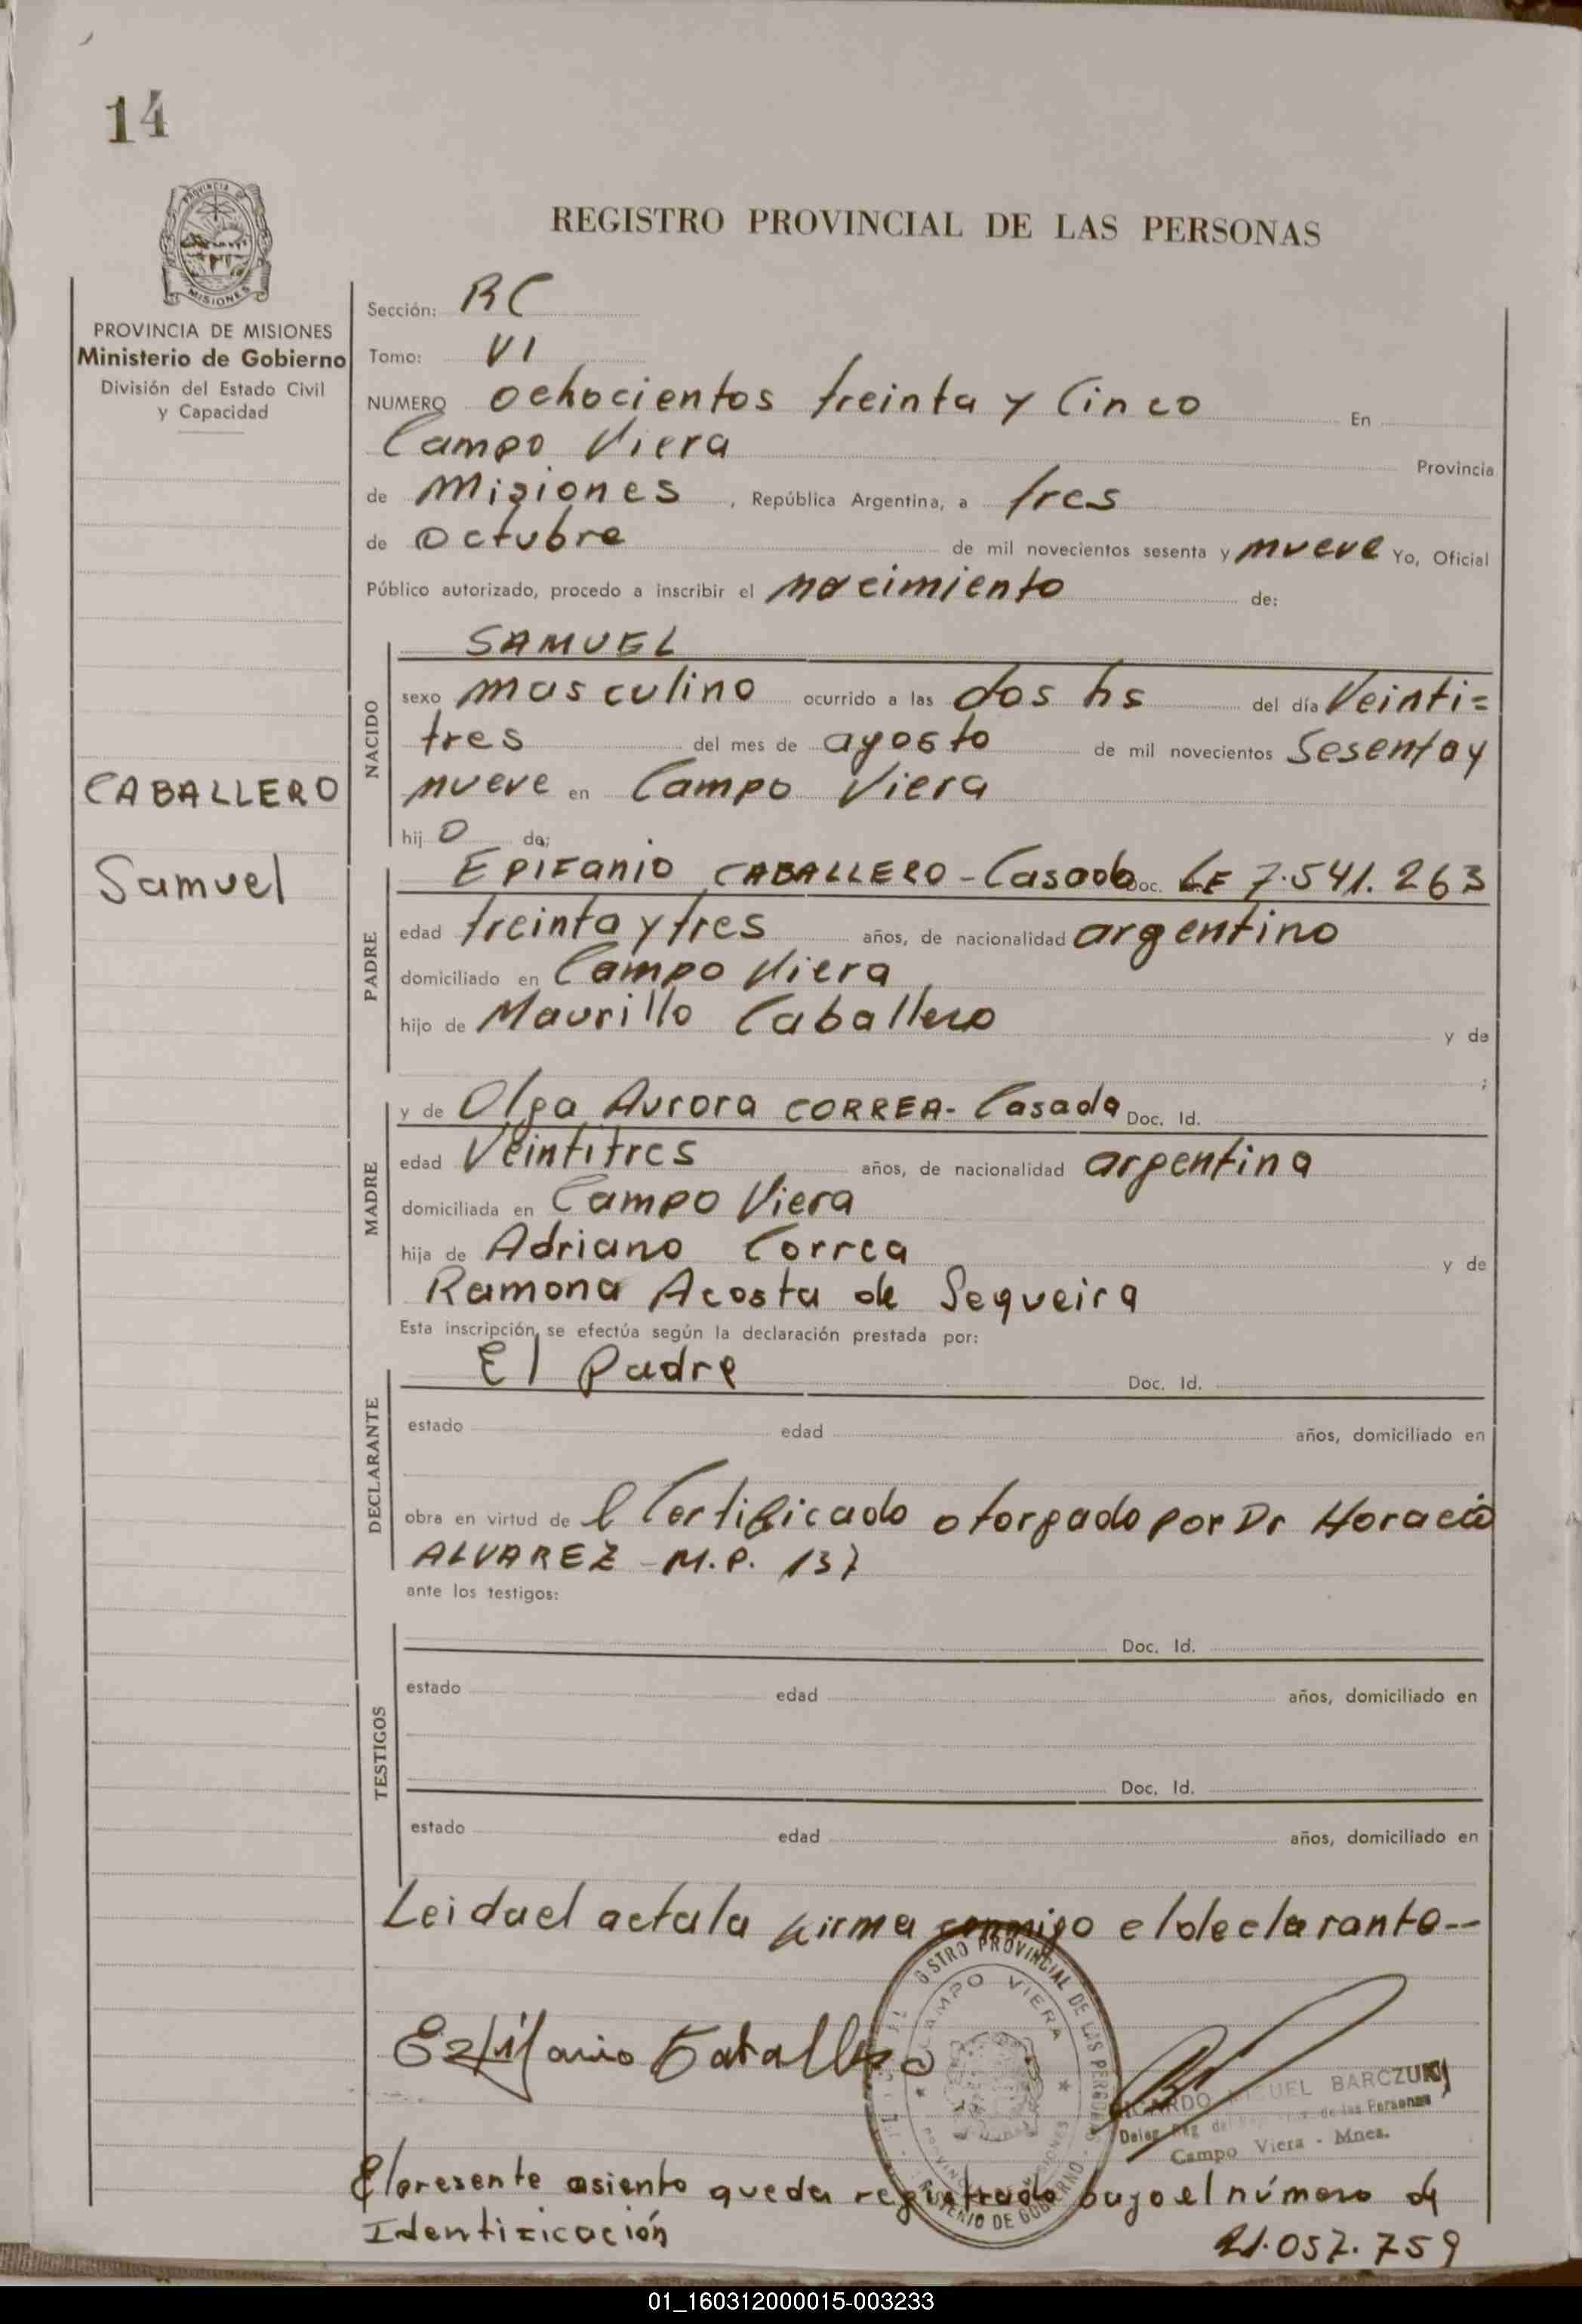 14
PROVINCIA DE MISIONES
REGISTRO PROVINCIAL DE LAS PERSONAS
PROVINCIA DE MISIONES
Ministerio de Gobierno
División del Estado Civil
y Capacidad
CABALLERO
Samuel
Sección: RC
Tomo: VI
NUMERO ochocientos treinta y Cinco En
Campo Viera Provincia
de Misiones, República Argentina, a tres
de Octubre de mil novecientos sesenta y nueve Yo, Oficial
Público autorizado, procedo a inscribir el nacimiento de:
NACIDO
SAMUEL
sexo masculino ocurrido a las dos hs del día Veinti=
tres del mes de agosto de mil novecientos Sesenta y
nueve en Campo Viera
hij o de:
PADRE
EPIFANIO CABALLERO - Casado Doc. LE 7.541.263
edad treinta y tres años, de nacionalidad argentino
domiciliado en Campo Viera
hijo de Maurillo Caballero y de
;
MADRE
y de Olga Aurora CORREA - Casada Doc. Id.
edad Veintitres años, de nacionalidad argentina
domiciliada en Campo Viera
hija de Adriano Correa y de
Ramona Acosta de Sequeira
Esta inscripción, se efectúa según la declaración prestada por:
DECLARANTE
El Padre Doc. Id.
estado edad años, domiciliado en
obra en virtud de l Certificado otorgado por Dr Horacio
ALVAREZ - M.P. 137
ante los testigos:
TESTIGOS
Doc. Id.
estado edad años, domiciliado en
Doc. Id.
estado edad años, domiciliado en
Leida el acta la firma conmigo el declarante--
Epifanio Caballero
CAMPO VIERA
RICARDO MIGUEL BARCZUK
Campo Viera - Mnes.
El presente asiento queda registrado bajo el número de
Identificación 21.057.759
01_160312000015-003233